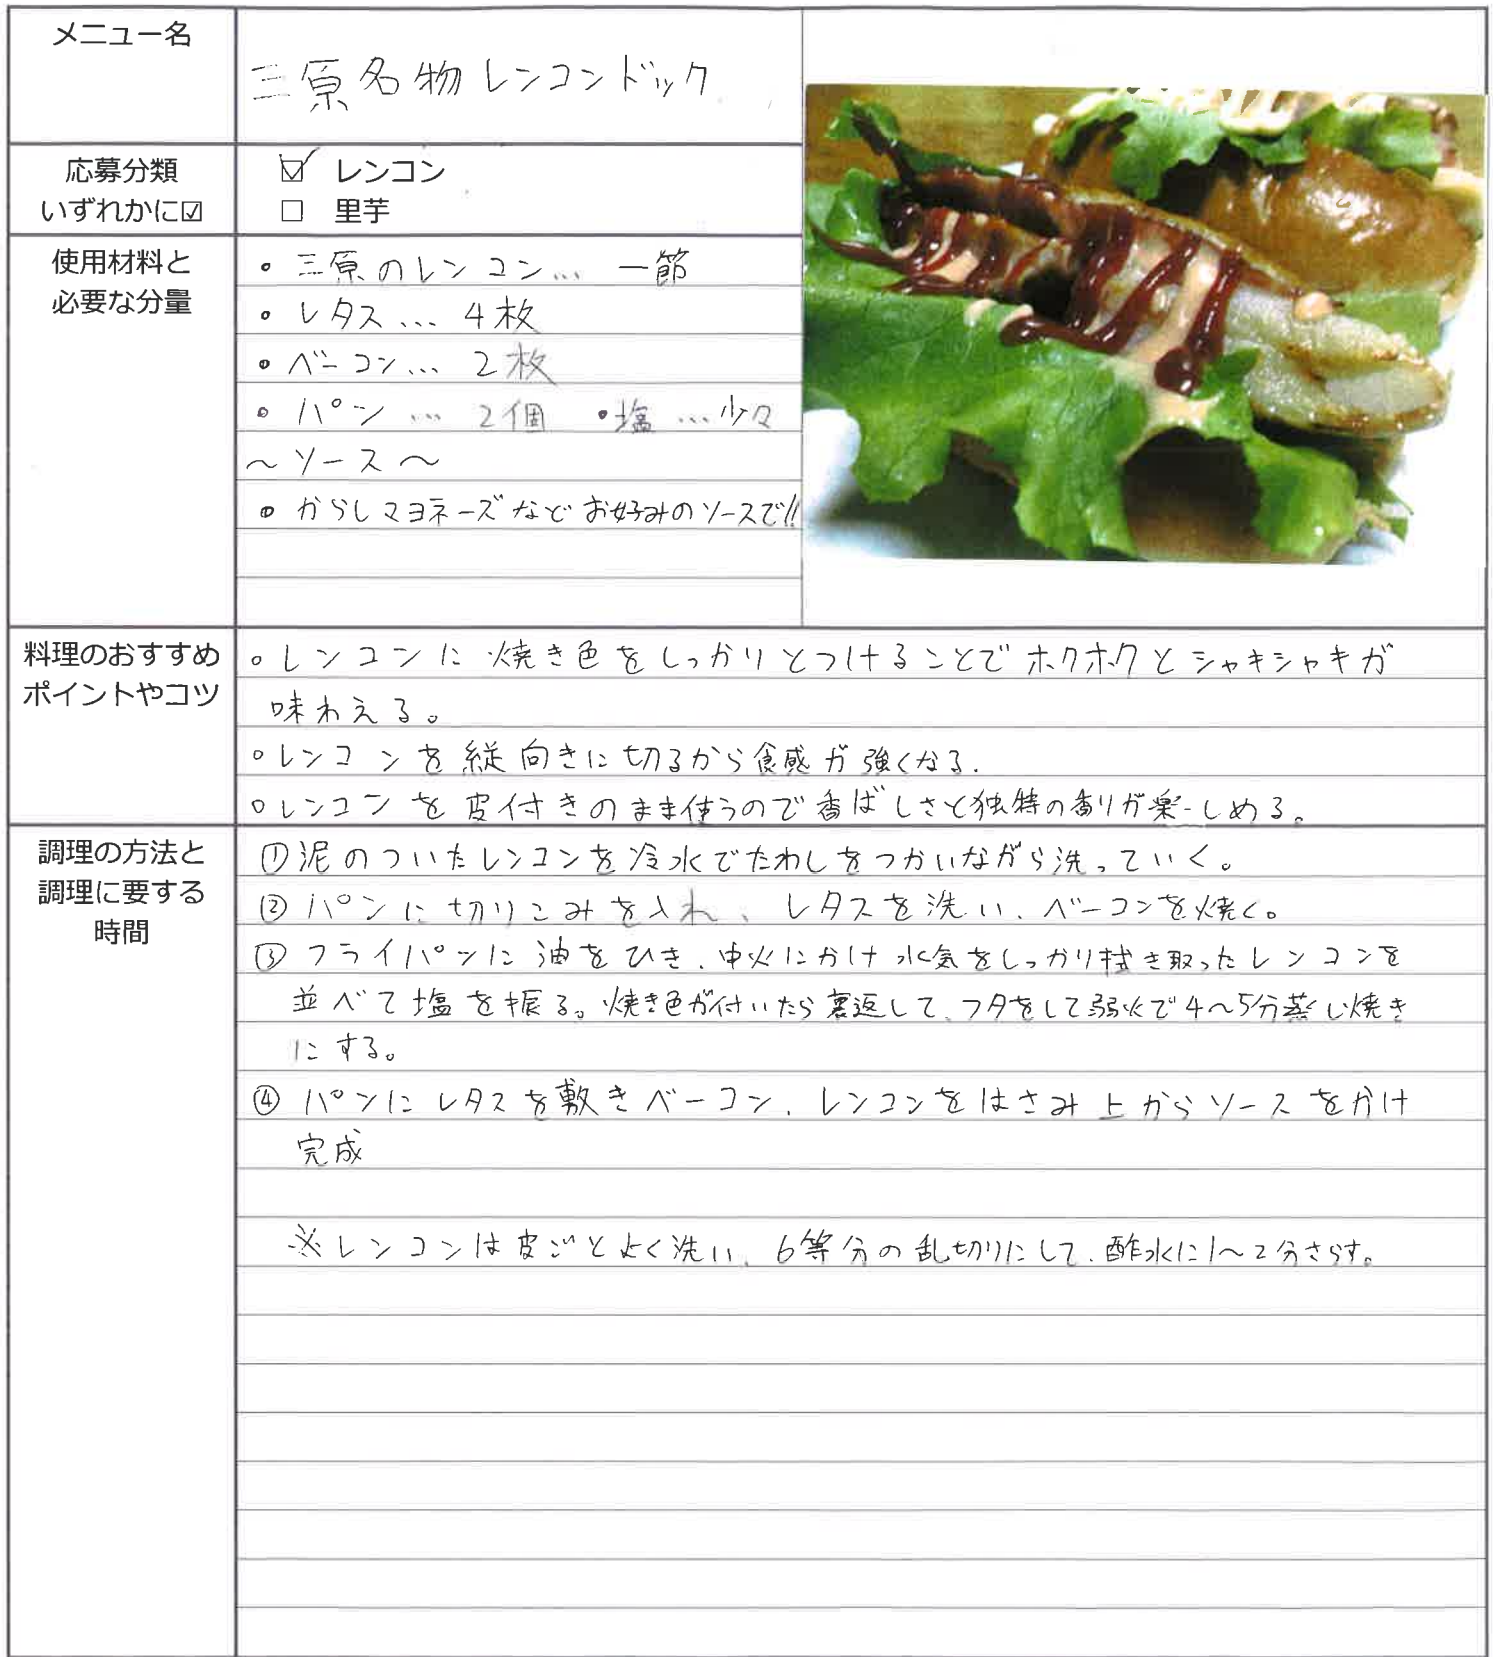 メニュー名
三原名物レンコンドック
応募分類
いずれかに☑
☑ レンコン
□ 里芋
使用材料と
必要な分量
・三原のレンコン… 一節
・レタス… 4枚
・ベーコン… 2枚
・パン… 2個 ・塩…少々
～ソース～
・からしマヨネーズなどお好みのソースで!!
料理のおすすめ
ポイントやコツ
。レンコンに焼き色をしっかりとつけることでホクホクとシャキシャキが
味わえる。
。レンコンを縦向きに切るから食感が強くなる.
。レンコンを皮付きのまま使うので香ばしさと独特の香りが楽しめる。
調理の方法と
調理に要する
時間
①泥のついたレンコンを冷水でたわしをつかいながら洗っていく。
②パンに切りこみを入れ、レタスを洗い、ベーコンを焼く。
③フライパンに油をひき、中火にかけ水気をしっかり拭き取ったレンコンを
並べて塩を振る。焼き色が付いたら裏返して、フタをして弱火で4～5分蒸し焼き
にする。
④パンにレタスを敷きベーコン、レンコンをはさみ上からソースをかけ
完成
※レンコンは皮ごとよく洗い、6等分の乱切りにして、酢水に1～2分さらす。